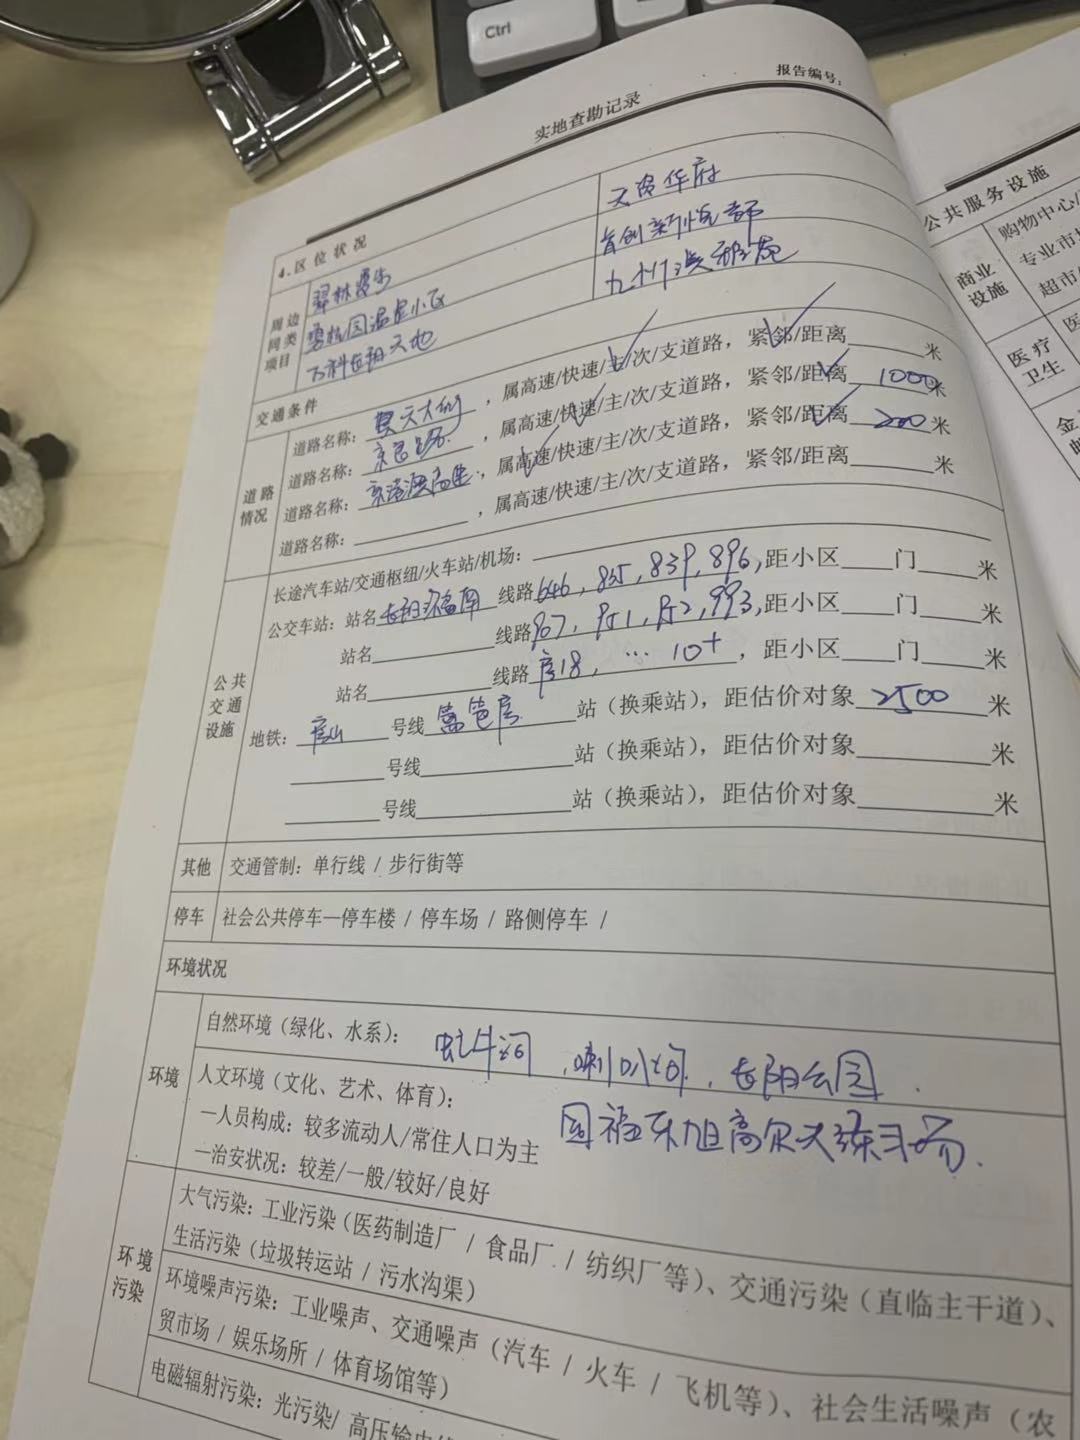 Ctrl
报告编号:
实地查勘记录
4.区位状况
周边同类项目
翠林漫步
天资华府
首创新悦都
万科长阳天地
九州溪雅苑
交通条件
道路情况
道路名称: ，属高速/快速/主/次/支道路，紧邻/距离 米
道路名称: ，属高速/快速/主/次/支道路，紧邻/距离 1000 米
道路名称: 京港澳高速，属高速/快速/主/次/支道路，紧邻/距离 200 米
道路名称: ，属高速/快速/主/次/支道路，紧邻/距离 米
公共交通设施
长途汽车站/交通枢纽/火车站/机场:
公交车站: 站名 长阳环岛南 线路 646, 835, 839, 896, 距小区 门 米
站名 线路 907, 993, 距小区 门 米
站名 线路 房18, … 10+ ，距小区 门 米
地铁: 房山 号线 篱笆房 站（换乘站），距估价对象 2500 米
号线 站（换乘站），距估价对象 米
号线 站（换乘站），距估价对象 米
其他 交通管制: 单行线 / 步行街等
停车 社会公共停车—停车楼 / 停车场 / 路侧停车 /
环境状况
环境
自然环境（绿化、水系）: 虻牛河，喇叭河，长阳公园.
人文环境（文化、艺术、体育）:
—人员构成: 较多流动人/常住人口为主
东旭高尔夫练习场.
—治安状况: 较差/一般/较好/良好
环境污染
大气污染: 工业污染（医药制造厂 / 食品厂 / 纺织厂等）、交通污染（直临主干道）、
生活污染（垃圾转运站 / 污水沟渠）
环境噪声污染: 工业噪声、交通噪声（汽车 / 火车 / 飞机等）、社会生活噪声（农
贸市场 / 娱乐场所 / 体育场馆等）
电磁辐射污染: 光污染/ 高压输电
公共服务设施
商业设施
购物中心/
专业市场
超市
医疗卫生